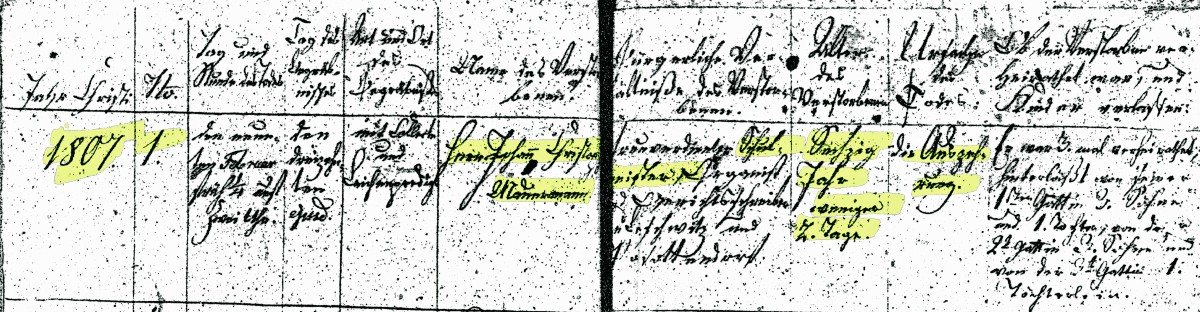 Jahr Christi
No.
Tag und
Stunde des Todes
Tag des
Begräb-
nisses
Art und Ort
des
Begräbnisses
Name des Verstor-
benen.
Bürgerliche Ver-
ältniße des Verstor-
benen.
Alter
des
Verstorbenen
Ursache
des
Todes:
Ob der Verstorbene ver-
heirathet war, und
Kinder verlassen:
1807
1
den neun-
ten Februar
früh
zwei Uhr.
den
dreizehn-
ten
ejusd.
mit Collecte
und
Leichenpredigt
Herr Johann Christian
Schul-
meister, Organist
Gerichtsschreiber
und
Sechzig
Jahr
weniger
2. Tage.
die Auszeh-
rung.
Er war 3. mal verheirathet,
hinterläßt von seiner
1sten Gattin 3. Söhne
und 1. Tochter, von der
2t Gattin Söhne und
von der 3t Gattin 1.
Töchterlein.